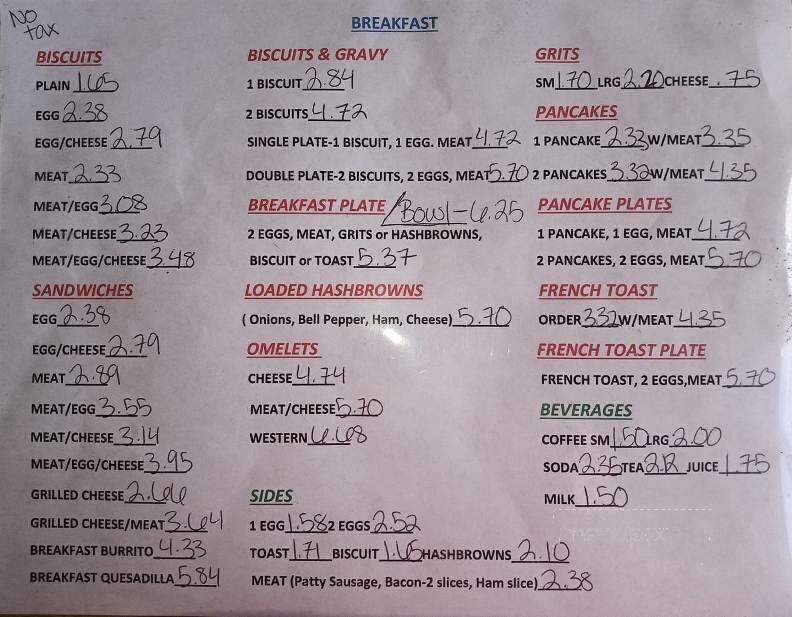 NO
tax
BREAKFAST
BISCUITS
PLAIN 1.65
EGG 2.38
EGG/CHEESE 2.79
MEAT 2.33
MEAT/EGG 3.08
MEAT/CHEESE 3.23
MEAT/EGG/CHEESE 3.48
SANDWICHES
EGG 2.38
EGG/CHEESE 2.79
MEAT 2.89
MEAT/EGG 3.55
MEAT/CHEESE 3.14
MEAT/EGG/CHEESE 3.95
GRILLED CHEESE 2.66
GRILLED CHEESE/MEAT 3.64
BREAKFAST BURRITO 4.33
BREAKFAST QUESADILLA 5.84
BISCUITS & GRAVY
1 BISCUIT 2.84
2 BISCUITS 4.72
SINGLE PLATE-1 BISCUIT, 1 EGG. MEAT 4.72
DOUBLE PLATE-2 BISCUITS, 2 EGGS, MEAT 5.70
BREAKFAST PLATE /Bowl-6.25
2 EGGS, MEAT, GRITS or HASHBROWNS,
BISCUIT or TOAST 5.37
LOADED HASHBROWNS
( Onions, Bell Pepper, Ham, Cheese) 5.70
OMELETS
CHEESE 4.74
MEAT/CHEESE 5.70
WESTERN 6.68
SIDES
1 EGG 1.58 2 EGGS 2.52
TOAST 1.71 BISCUIT 1.65 HASHBROWNS 2.10
MEAT (Patty Sausage, Bacon-2 slices, Ham slice) 2.38
GRITS
SM 1.70 LRG 2.20 CHEESE .75
PANCAKES
1 PANCAKE 2.33 W/MEAT 3.35
2 PANCAKES 3.32 W/MEAT 4.35
PANCAKE PLATES
1 PANCAKE, 1 EGG, MEAT 4.72
2 PANCAKES, 2 EGGS, MEAT 5.70
FRENCH TOAST
ORDER 3.32 W/MEAT 4.35
FRENCH TOAST PLATE
FRENCH TOAST, 2 EGGS,MEAT 5.70
BEVERAGES
COFFEE SM 1.50 LRG 2.00
SODA 2.35 TEA 2.12 JUICE 1.75
MILK 1.50